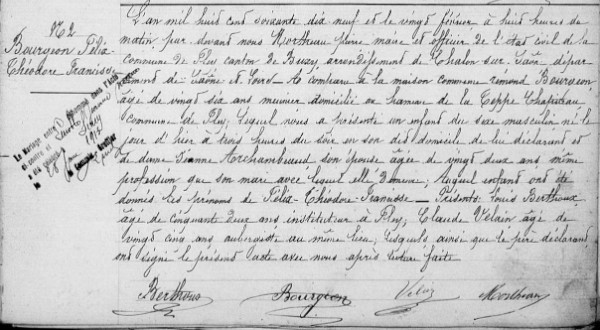 N° 2
Bourgeon Félix-
Théodore Francisse
Le Mariage entre
L'an mil huit cent soixante dix neuf et le vingt février à huit heures du
matin par devant nous Mortheau Pierre maire et officier de l'état civil de la
commune de Fley canton de Buxy arrondissement de Chalon sur Saône dépar-
tement de Saône et Loire A comparu à la maison commune Edmond Bourgeon
âgé de vingt six ans meunier domicilié au hameau de la Teppe Chapiteau
commune de Fley; lequel nous a présenté un enfant du sexe masculin né le
jour d'hier à trois heures du soir en son dit domicile de lui déclarant et
de dame Jeanne Archambaud son épouse âgée de vingt deux ans même
profession que son mari avec lequel elle demeure; Auquel enfant ont été
donnés les prénoms de Félix-Théodore-Francisse — Présents: Louis Berthoux
âgé de cinquante deux ans instituteur à Fley; Claude Velain âgé de
vingt cinq ans aubergiste au même lieu; lesquels ainsi que le père déclarant
ont signé le présent acte avec nous après lecture faite
Berthoux Bourgeon Mortheau